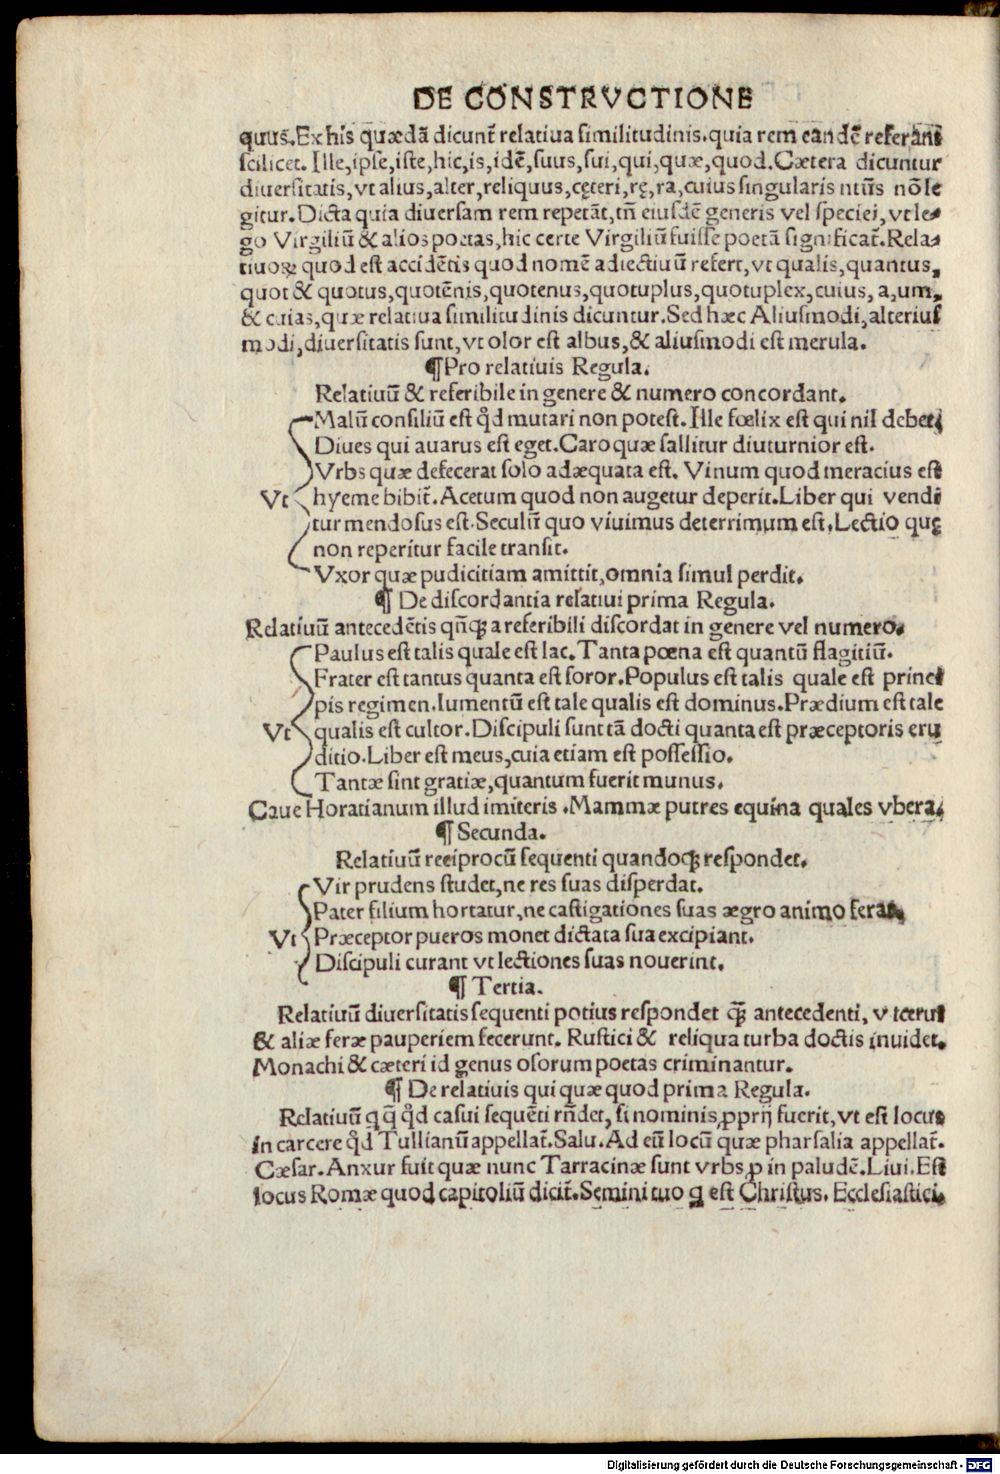 DE CONSTRVCTIONE
quus̃.Ex his quædã dicunt̃ relatiua similitudinis.quia rem eandẽ referant
scilicet. Ille,ipse,iste,hic,is,idẽ,suus,sui,qui,quæ,quod.Cætera dicuntur
diuersitatis,vt alius,alter,reliquus,cęteri,rę,ra,cuius singularis ntũs nõ le
gitur.Dicta quia diuersam rem repetãt,tñ eiusdẽ generis vel speciei,vt le⸗
go Virgiliũ & alios poetas,hic certe Virgiliũ fuisse poetã significat̃.Rela⸗
tiuoꝝ quod est accidẽtis quod nomẽ adiectiuũ refert,vt qualis,quantus,
quot & quotus,quotẽnis,quotenus,quotuplus,quotuplex,cuius, a,um,
& cuias,quæ relatiua similitudinis dicuntur.Sed hæc Aliusmodi,alterius
modi,diuersitatis sunt,vt olor est albus,& aliusmodi est merula.
¶Pro relatiuis Regula.
Relatiuũ & referibile in genere & numero concordant.
Malũ consiliũ est qd̉ mutari non potest. Ille fœlix est qui nil debet;
Diues qui auarus est eget.Caro quæ sallitur diuturnior est.
Vrbs quæ defecerat solo adæquata est. Vinum quod meracius est
Vt hyeme bibit̃.Acetum quod non augetur deperit.Liber qui vendi
tur mendosus est.Seculũ quo viuimus deterrimum est.Lectio quę
non reperitur facile transit.
Vxor quæ pudicitiam amittit,omnia simul perdit.
¶ De discordantia relatiui prima Regula.
Relatiuũ antecedẽtis qñqꝫ a referibili discordat in genere vel numero.
Paulus est talis quale est lac.Tanta pœna est quantũ flagitiũ.
Frater est tantus quanta est soror.Populus est talis quale est princi
pis regimen.Iumentũ est tale qualis est dominus.Prædium est tale
Vt qualis est cultor.Discipuli sunt tã docti quanta est præceptoris eru
ditio.Liber est meus,cuia etiam est possessio.
Tantæ sint gratiæ,quantum fuerit munus.
Caue Horatianum illud imiteris .Mammæ putres equina quales vbera.
¶ Secunda.
Relatiuũ reciprocũ sequenti quandoqꝫ respondet.
Vir prudens studet,ne res suas disperdat.
Pater filium hortatur,ne castigationes suas ægro animo ferat.
Vt Præceptor pueros monet dictata sua excipiant.
Discipuli curant vt lectiones suas nouerint.
¶ Tertia.
Relatiuũ diuersitatis sequenti potius respondet qꝫ̃ antecedenti, v tcerui
& aliæ feræ pauperiem fecerunt. Rustici & reliqua turba doctis inuidet.
Monachi & cæteri id genus osorum poetas criminantur.
¶ De relatiuis qui quæ quod prima Regula.
Relatiuũ q q̃ qd̉ casui sequẽti rñdet, si nominis ꝓprij fuerit, vt est locus
in carcere qd̉ Tullianũ appellat̃. Salu. Ad eũ locũ quæ pharsalia appellat̃.
Cæsar. Anxur fuit quæ nunc Tarracinæ sunt vrbs ꝓ in paludẽ. Liui. Est
locus Romæ quod capitoliũ dicit̃.Semini tuo q est Christus. Ecclesiastici.
Digitalisierung gefördert durch die Deutsche Forschungsgemeinschaft - DFG